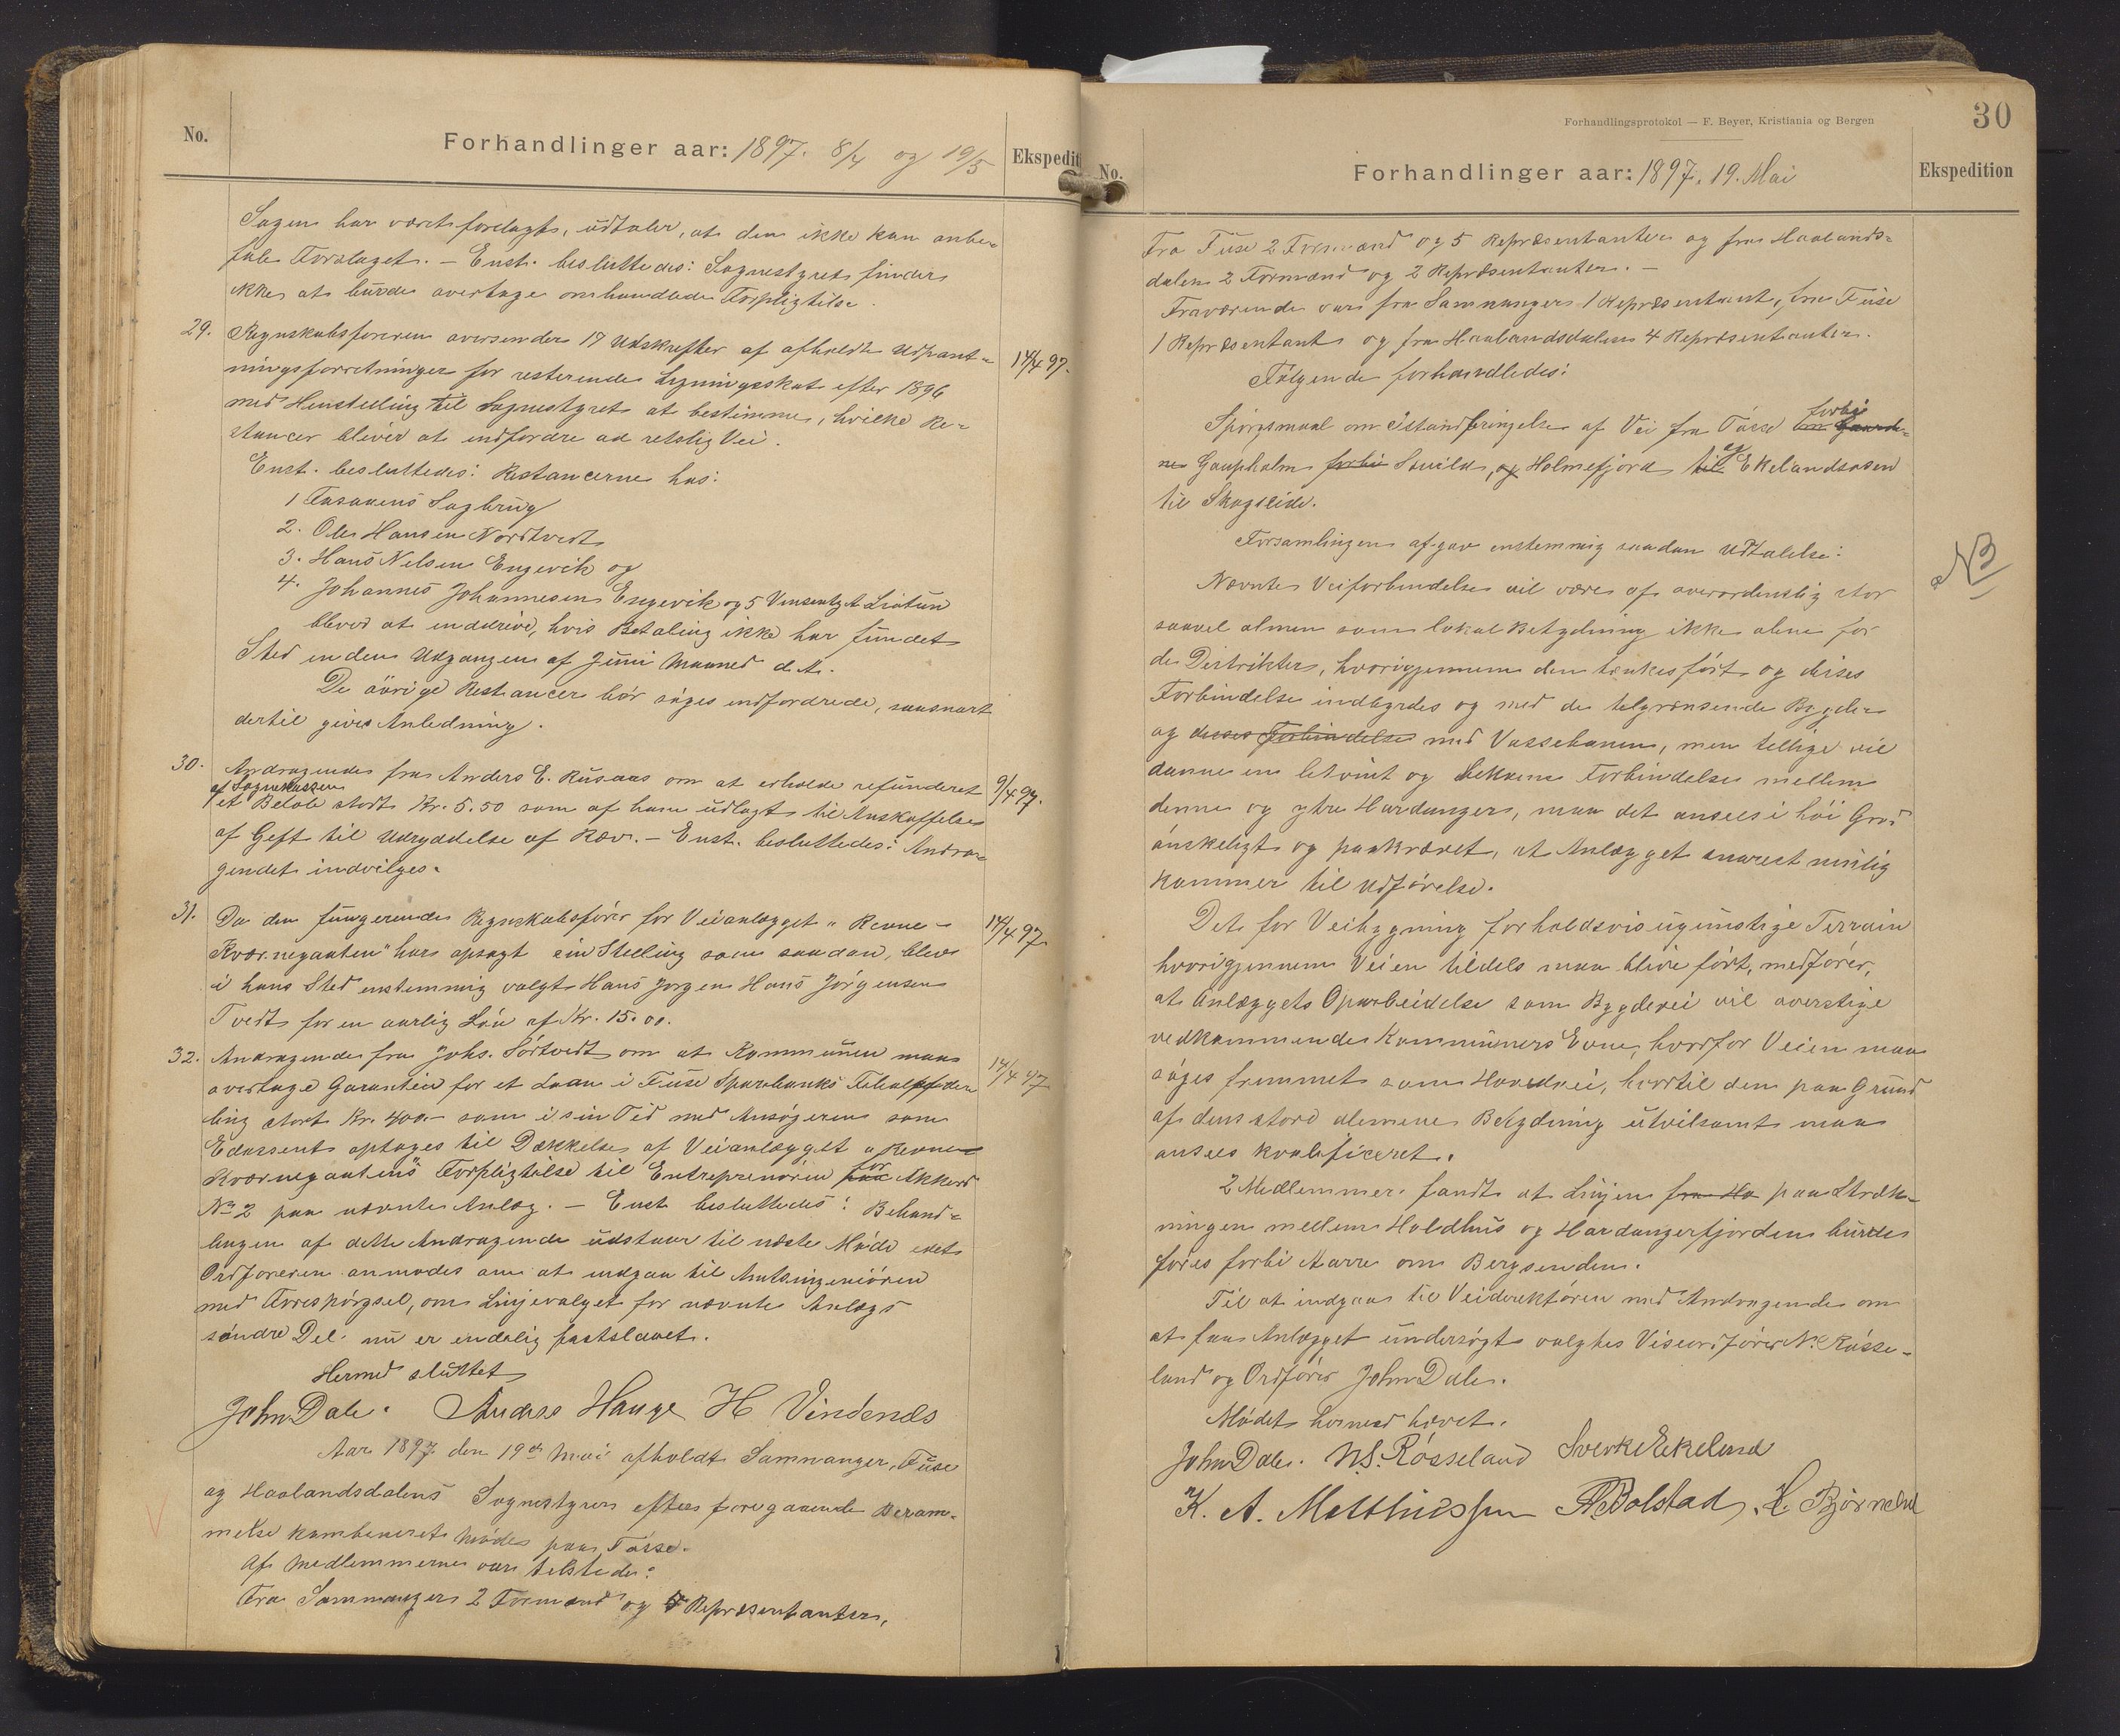 No.
Forhandlinger aar: 1897. 8/4 og 19/5
Ekspedit
Sagen har været forelagt, udtaler, at den ikke kan anbe-
fale Forslaget. – Enst. besluttedes: Sognestyret finder
ikke at burde overtage omhandlede Forpligtelse.
29. Regnskabsføreren oversender 17 Udskrifter af afholdte Udpant-
14/4 97.
ningsforretninger for resterende Ligningsskat efter 1896
med Henstilling til Sognestyret at bestemme, hvilke Re-
stancer bliver at indfordre ad retslig Vei.
Enst. besluttedes: Restancerne hos:
1 Aasaaens Sagbrug
2. Ole Hansen Nordtvedt
3. Hans Nelsen Engevik og
4. Johannes Johannesen Engevik og 5 Vinsents A Liatun
bliver at inddrive, hvis Betaling ikke har fundet
Sted inden Udgangen af Juni Maaned d.A.
De øvrige Restancer bør søges indfordrede, saasnart
dertil gives Anledning.
30. Andragende fra Anders E. Rusaas om at erholde refunderet
9/4 97.
af Sognekassen
et Beløb stort Kr. 5.50 som af ham udlagt til Anskaffelse
af Gift til Udryddelse af Ræv. – Enst. besluttedes: Andra-
gendet indvilges.
31. Da den fungerende Regnskabsfører for Veianlægget "Revne-
14/4 97.
Kværnegauten" har opsagt sin Stilling som saadan, blev
i hans Sted enstemmig valgt Hans Jørgen Hans Jørgensen
Tvedt for en aarlig Løn af Kr. 15.00.
32. Andragende fra Johs. Sørtvedt om at Kommunen maa
14/4 97
overtage Garantien for et Laan i Fuse Sparebanks Filialafde
ling stort Kr. 400.- som i sin Tid med Ansøgeren som
Edossent optoges til Dækkelse af Veianlægget "Revne-
Kværnegautens" Forpligtelse til Entreprenøren paa for Akkord
No 2 paa nævnte Anlæg. – Enst besluttedes: Behand-
lingen af dette Andragende udstaar til næste Møde idet
Ordføreren anmodes om at indgaa til Amtsingeniøren
med Forespørgsel, om Linjevalget for nævnte Anlægs
søndre Del nu er endelig fastslaaet.
Hermed sluttet
John Dale. Anders Hauge H Vindenes
Aar 1897 den 19de Mai afholdt Samnanger, Fuse
og Haalandsdalens Sognestyrer efter foregaaende Beram-
melse kombineret Møde paa Tøsse.
Af Medlemmerne var tilstede:
Fra Samnanger 2 Formænd og 7 Repræsentanter,
30
Forhandlingsprotokol — F. Beyer, Kristiania og Bergen
No.
Forhandlinger aar: 1897. 19. Mai
Ekspedition
Fra Fuse 2 Formænd og 5 Repræsentanter og fra Haalands-
dalen 2 Formænd og 2 Repræsentanter. –
Fraværende var fra Samnanger 1 Repræsentant, fra Fuse
1 Repræsentant og fra Haalandsdalen 4 Repræsentanter.
Følgende forhandledes:
Spørgsmaal om Istandbringelse af Vei fra Tøsse om Gaarde- forbi
ne Gaupholm forbi Sævild, og Holmefjord til og Ekelandsosen
til Skogseide.
Forsamlingen afgav enstemmig saadan Udtalelse:
NB
Nævnte Veiforbindelse vil være af overordentlig stor
saavel almen som lokal Betydning ikke alene for
de Distrikter, hvorigjennem den tænkes ført og disses
Forbindelse indbyrdes og med de tilgrænsende Bygder
og disses Forbindelse med Vossebanen, men tillige vil
danne en letvint og bekvem Forbindelse mellem
denne og ytre Hardanger, maa det ansees i høi Grad
ønskeligt og paakrævet, at Anlægget snarest mulig
kommer til Udførelse.
Det for Veibygning forholdsvis ugunstige Terrain
hvorigjennem Veien tildels maa blive ført, medfører,
at Anlæggets Oparbeidelse som Bygdevei vil overstige
vedkommende Kommuners Evne, hvorfor Veien maa
søges fremmet som Hovedvei, hvortil den paa Grund
af dens store almene Betydning utvilsomt maa
ansees kvalificeret.
2 Medlemmer fandt at Linjen fra Ho paa Stræk-
ningen mellem Holdhus og Hardangerfjorden burde
føres forbi Aarre om Bergsenden.
Til at indgaa til Veidirektøren med Andragende om
at faa Anlægget undersøgt valgtes Viseordfører N. Røsse-
land og Ordfører John Dale.
Mødet hermed hævet.
John Dale. N.S. Røsseland Sverke Ekeland
K. A. Matthiessen A Bolstad, L. Bjørndal